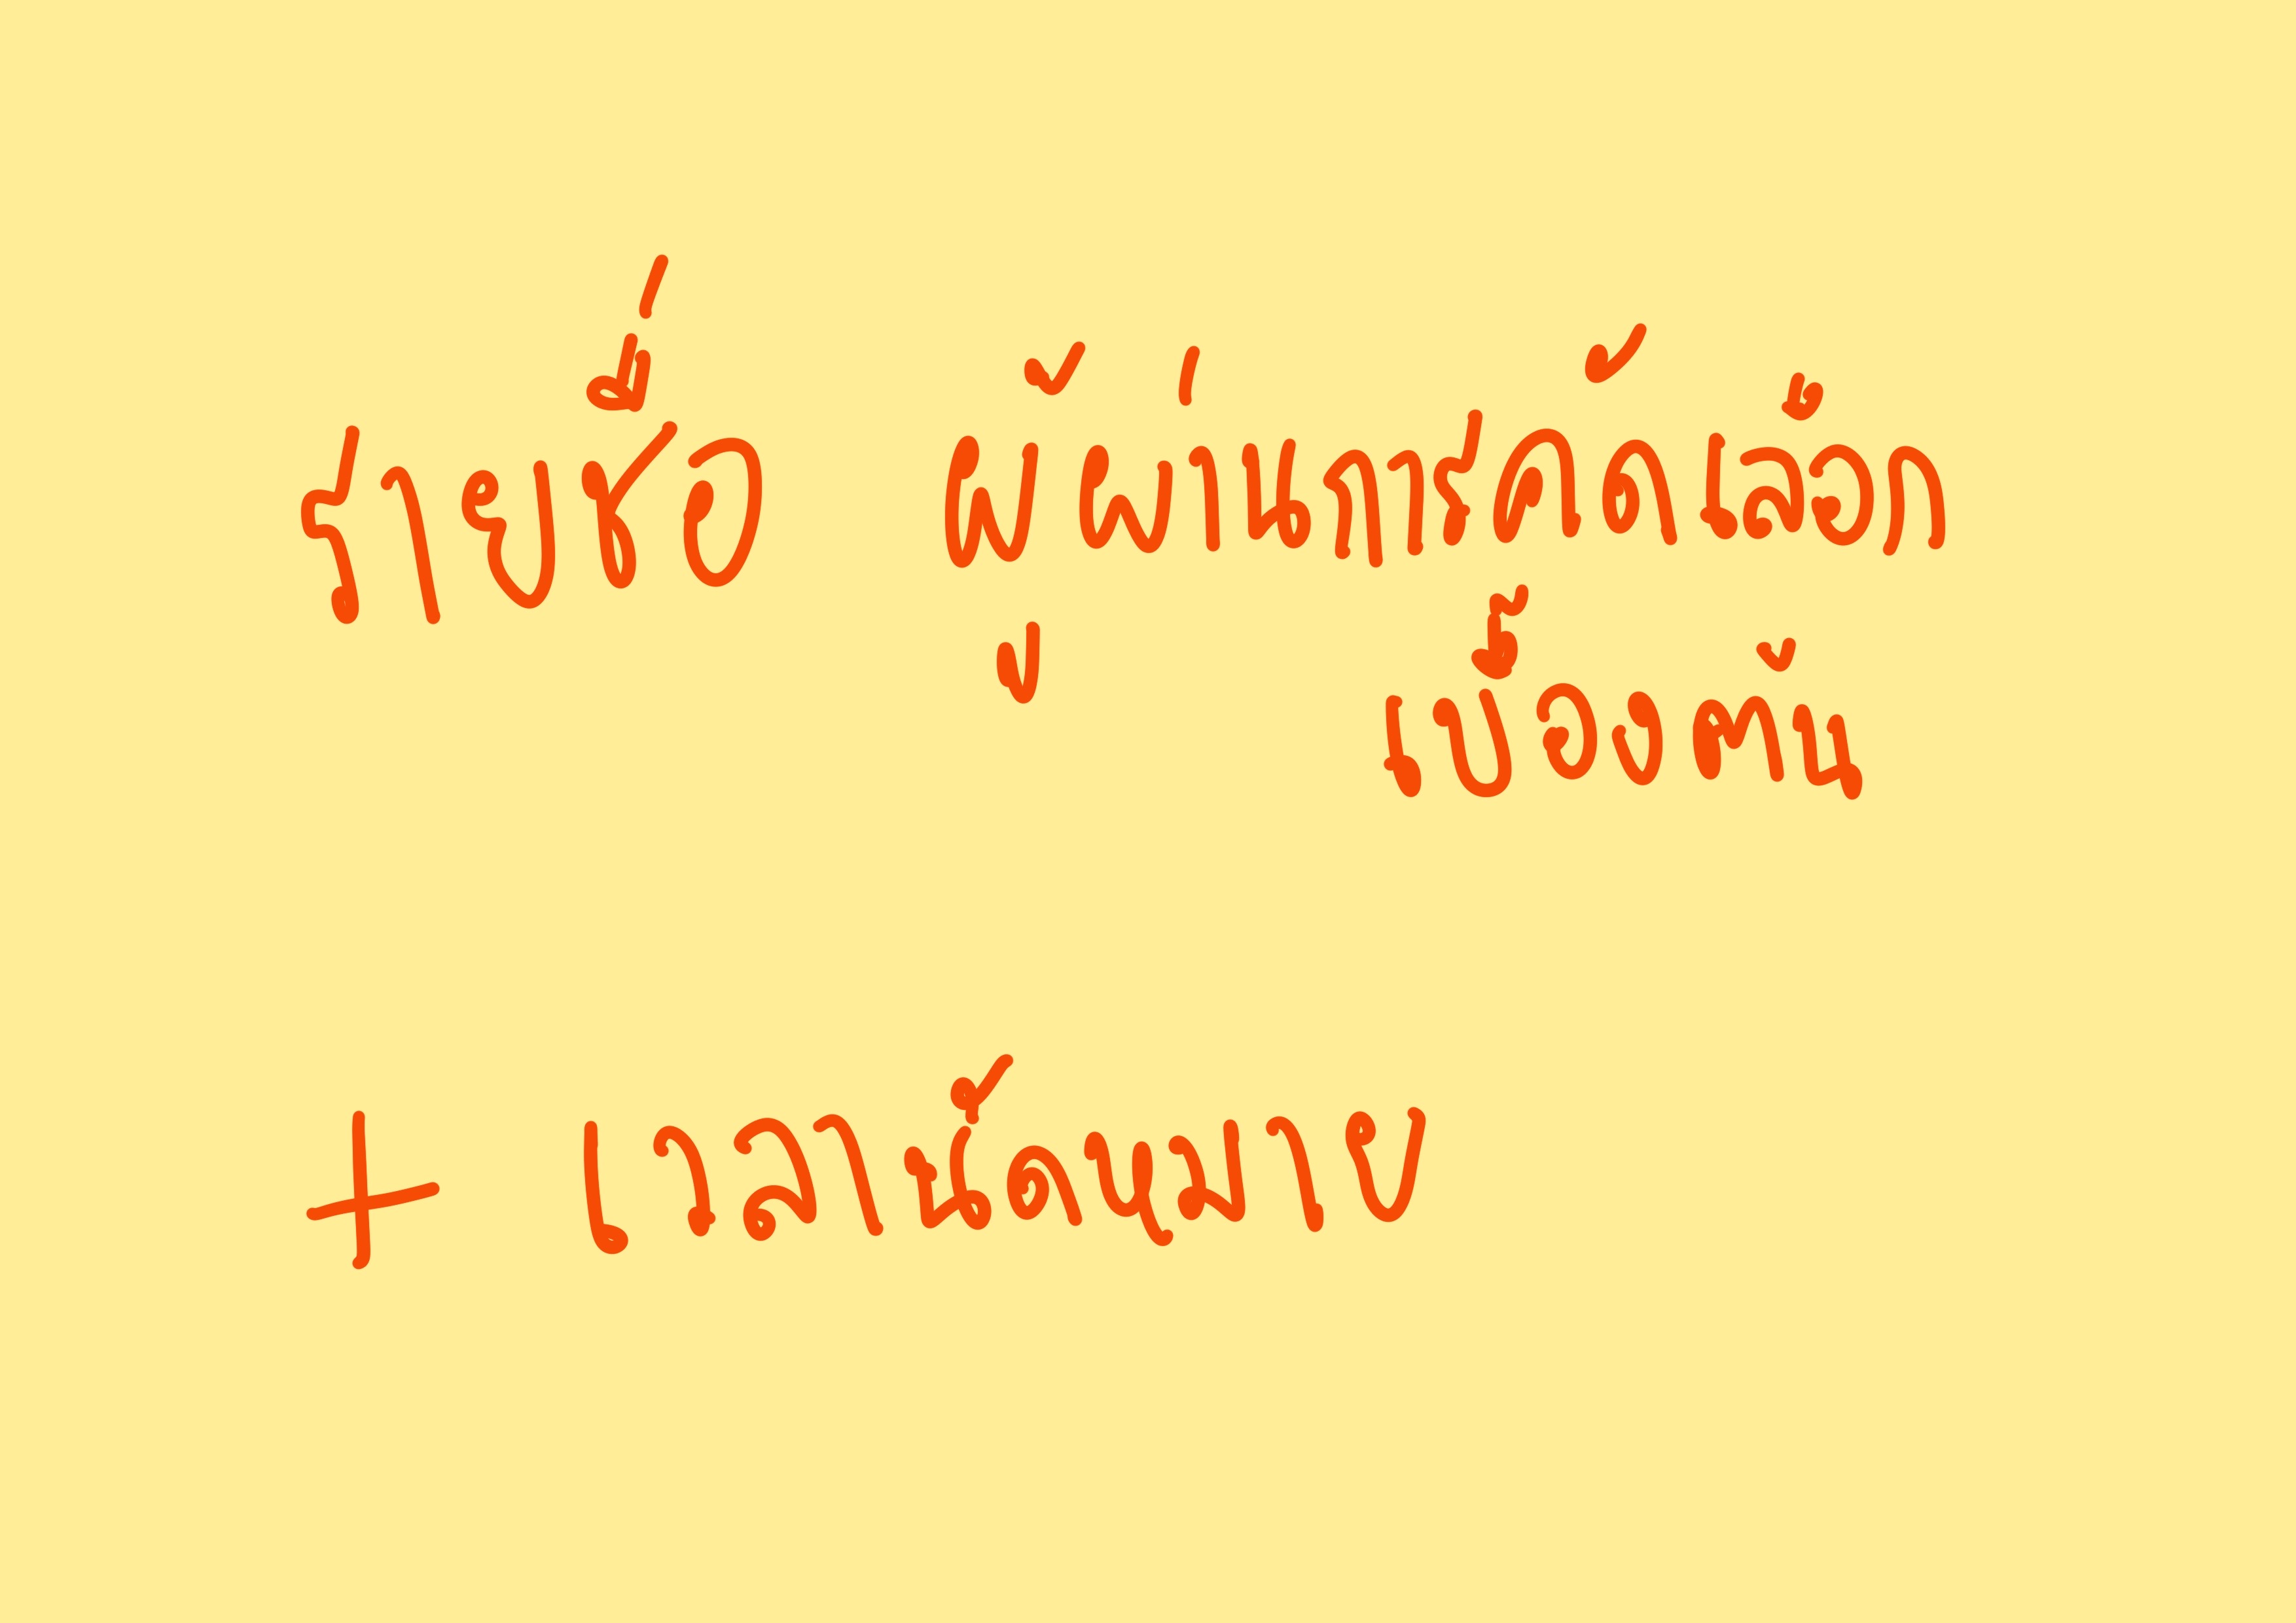 รายชื่อ ผู้ผ่านการคัดเลือก
เบื้องต้น
+ เวลานัดหมาย